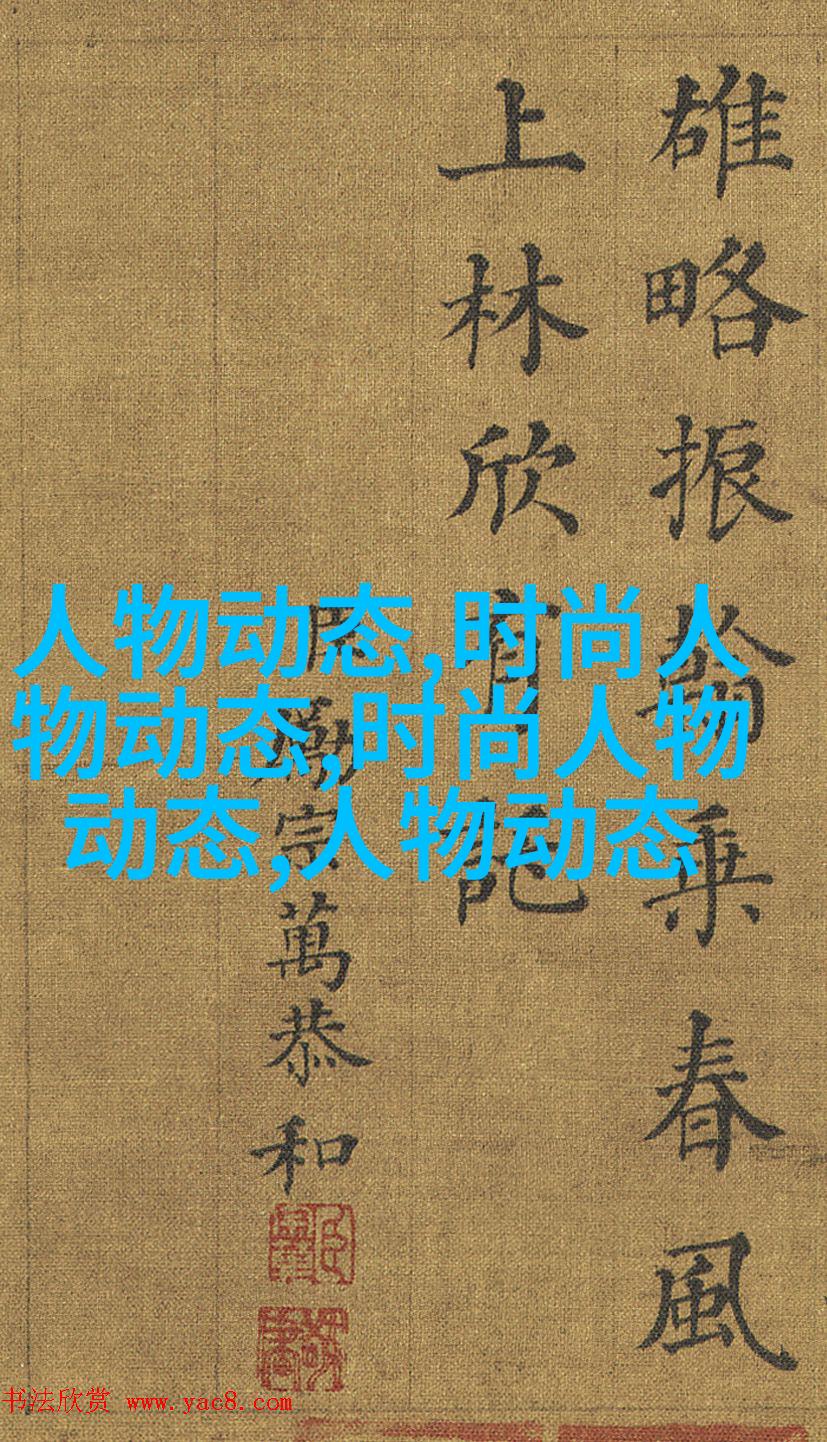 雄略振翰乗春風
上林欣有
臣勵宗萬恭和
人物动态,时尚人
物动态,时尚人物
动态,人物动态
书法欣赏 www.yac8.com